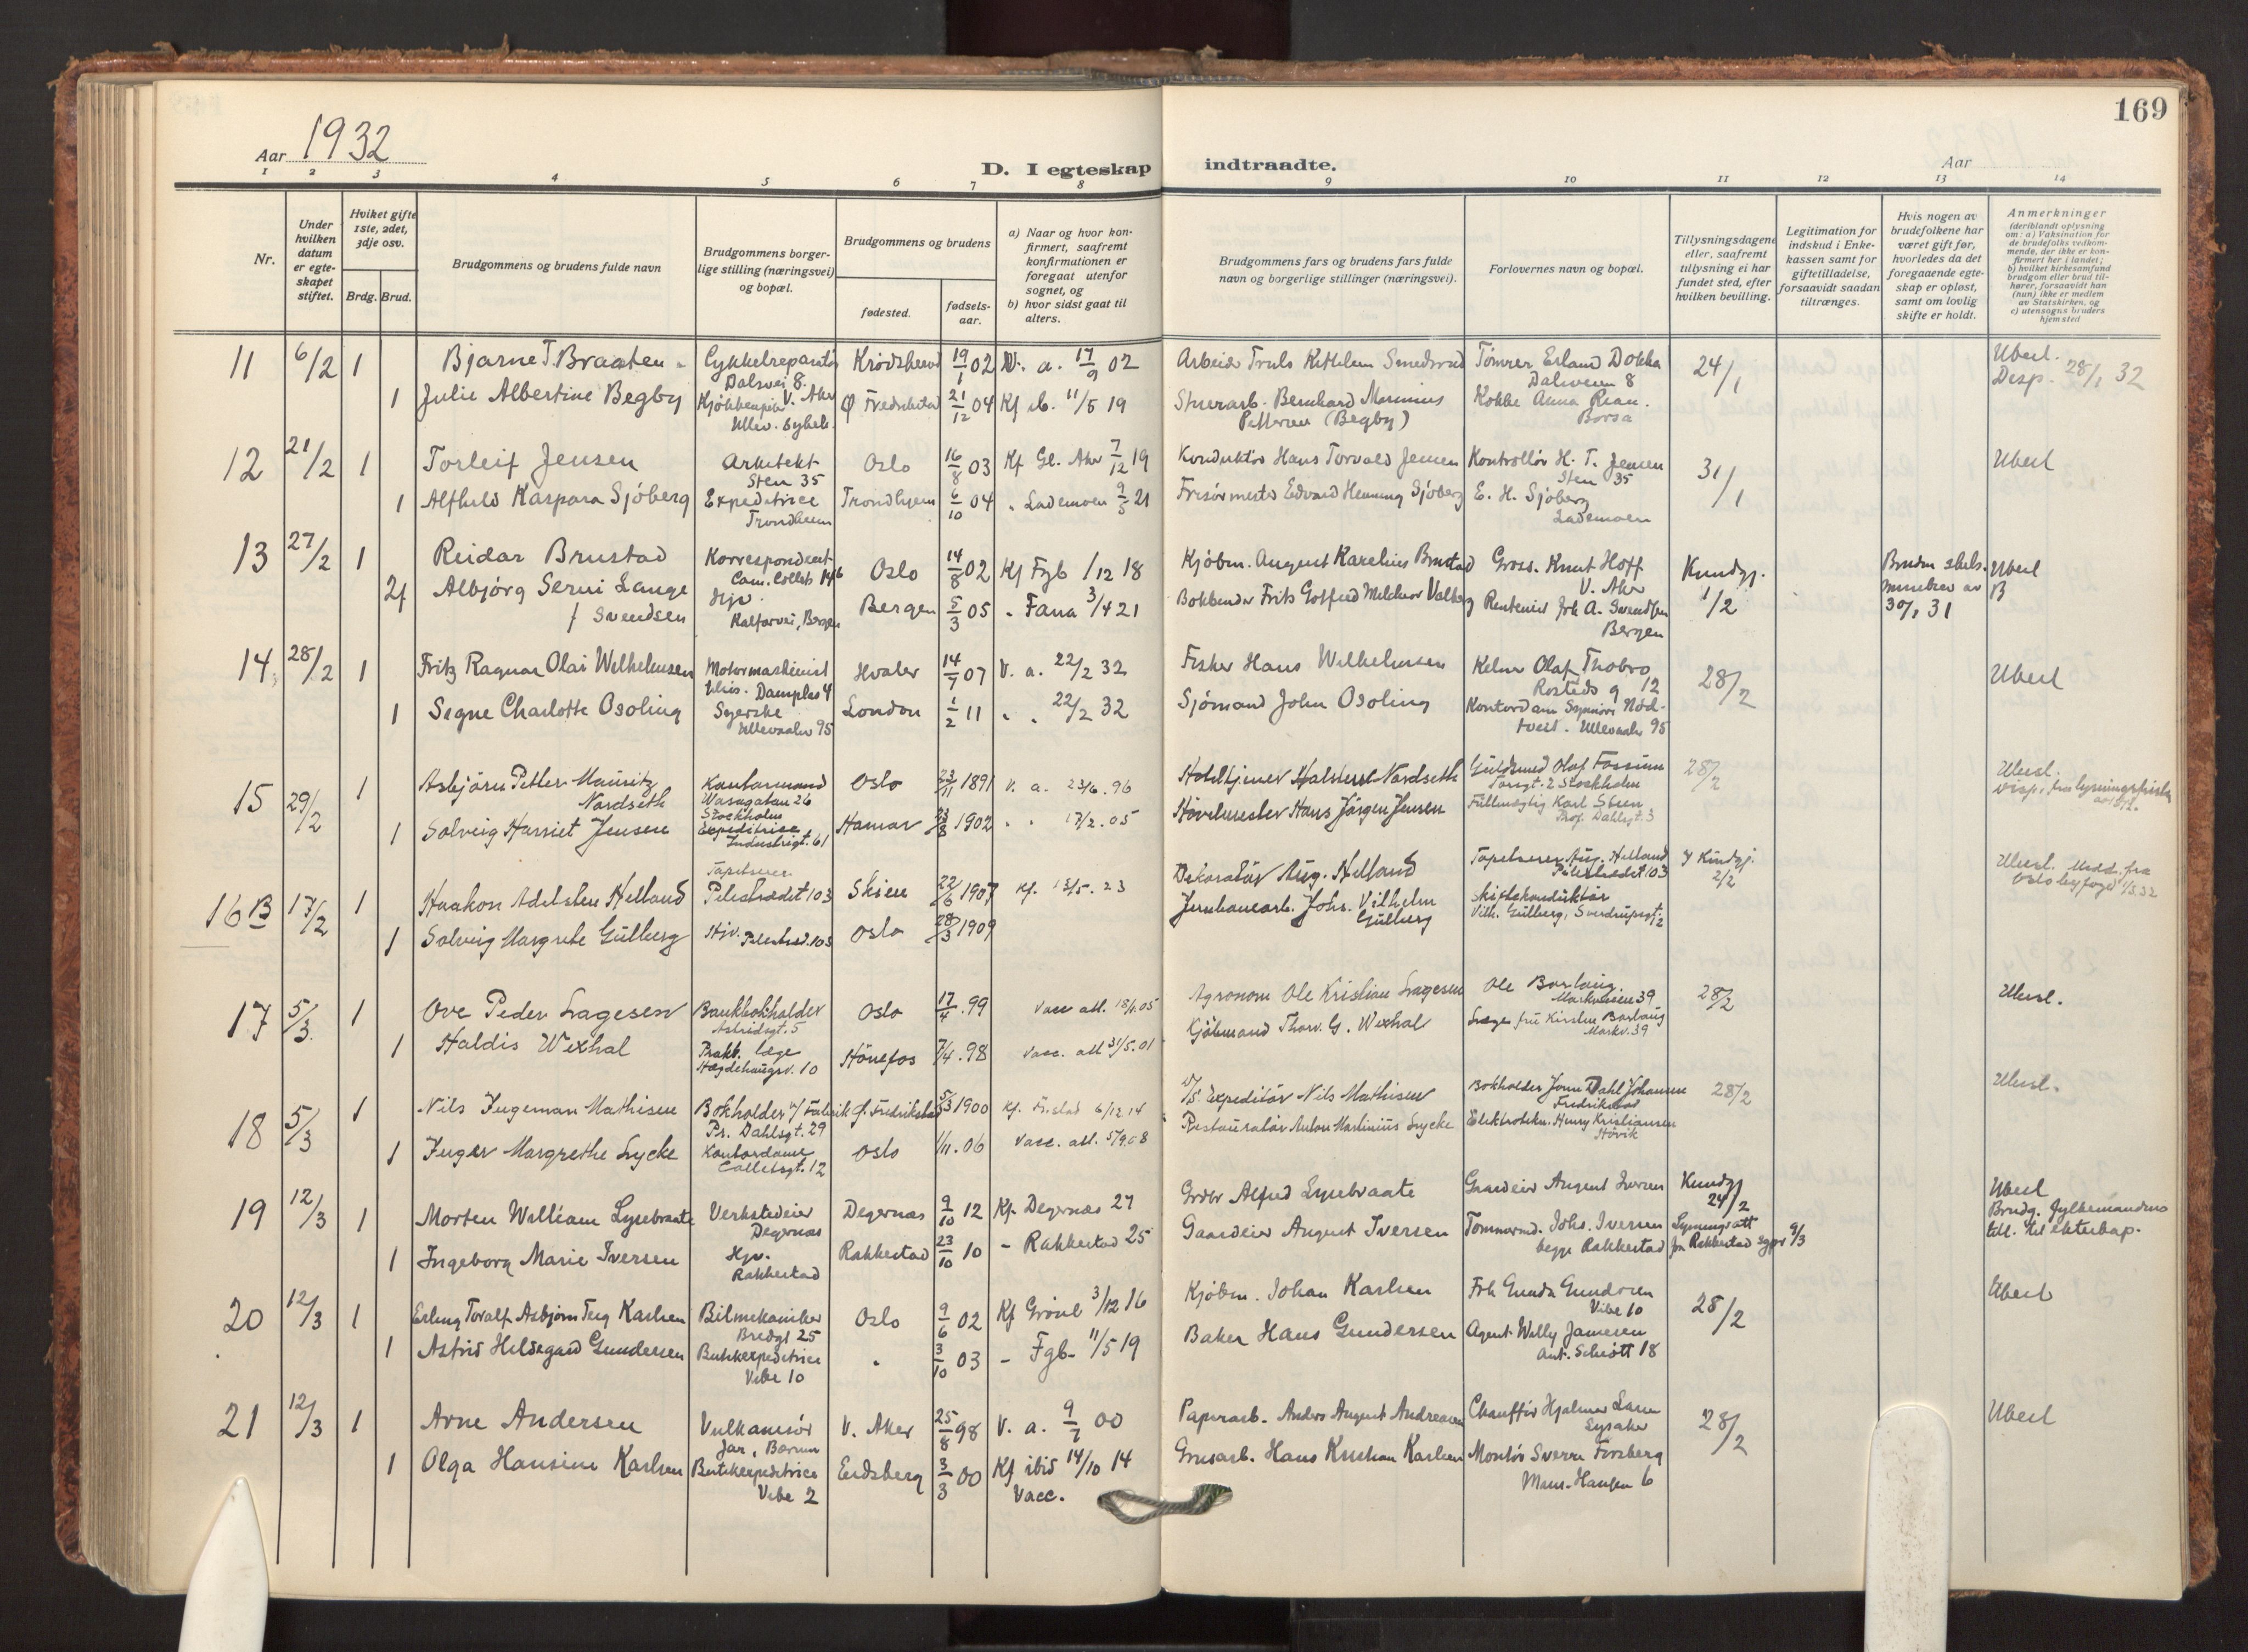 169
Aar 1932
D. I egteskap indtraadte.
Aar
1 2 3 4 5 6 7 8 9 10 11 12 13 14
Nr.
Under hvilken datum er egteskapet stiftet.
Hvilket gifte 1ste, 2det, 3dje osv.
Brdg. Brud.
Brudgommens og brudens fulde navn
Brudgommens borgerlige stilling (næringsvei) og bopæl.
Brudgommens og brudens
fødested.
fødselsaar.
a) Naar og hvor konfirmert, saafremt konfirmationen er foregaat utenfor sognet, og
b) hvor sidst gaat til alters.
Brudgommens fars og brudens fars fulde navn og borgerlige stillinger (næringsvei).
Forlovernes navn og bopæl.
Tillysningsdagene eller, saafremt tillysning ei har fundet sted, efter hvilken bevilling.
Legitimation for indskud i Enkekassen samt for giftetilladelse, forsaavidt saadan tiltrænges.
Hvis nogen av brudefolkene har været gift før, hvorledes da det foregaaende egteskap er opløst, samt om lovlig skifte er holdt.
Anmerkninger (deriblandt oplysning om: a) Vaksination for de brudefolks vedkommende, der ikke er konfirmert her i landet; b) hvilket kirkesamfund brudgom eller brud tilhører, forsaavidt han (hun) ikke er medlem av Statskirken, og c) utensogns bruders hjemsted
11 6/2 1 Bjarne T. Braaten Cykkelreparatør Dalsvei 8. V. Aker Krødsherad 19/1 02 V. a. 17/9 02
Tømrer Erland Dokka Dalsveien 8 24/1 Ubesl. Desp. 28/1 32
1 Julie Albertine Begby Kjøkkenpike Ullev. sykeh. Ø Fredrikstad 21/12 04 Kf ib. 11/5 19
Bernhard Marinius Pettersen (Begby) Kokke Anna
12 21/2 1 Torleif Jensen Arkitekt Sten 35 Oslo 16/8 03 Kf Gl. Aker 7/12 19
Konduktør Hans Torvald Jensen Kontrollør H. T. Jensen Sten 35 31/1 Ubesl
1 Alfhild Kaspara Sjöberg Expeditrice Trondheim Trondhjem 6/10 04 " Lademoen 9/5 21
Frisørmester Edvard Henning Sjöberg E. H. Sjöberg Lademoen
13 27/2 1 Reidar Brustad Korrespondent Cam. Colletts 14b Oslo 14/8 02 Kf Fgb 1/12 18
Kjøbm. August Karelius Brustad Gross. Knut Hoff V. Aker Kundgj. 1/2 Bruden skils. 30/1 31 Ubesl B
2f Albjörg Serui Lange f Svendsen Hjv. Kalfarvei, Bergen Bergen 5/3 05 " Fana 3/4 21
Bokbinder Frits Gotfred Melchior Valberg Rentenier Joh A. Svendsen Bergen
14 28/2 1 Fritz Ragnar Olai Wilhelmsen Motormaskinist Damplas 4 Hvaler 14/7 07 V. a. 22/2 32
Fisker Hans Wilhelmsen Kelner Olaf Thobro Rosteds g 12 28/2 Ubesl
1 Signe Charlotte Osoling Syerske Ullevaalsv 95 London 1/2 11 " " 22/2 32
Sjömand John Osoling Kontordame Nødtveit. Ullevaalsv 95
15 29/2 1 Asbjörn Petter Mauritz Nordseth Kontormand Wasagatan 26 Stockholm Oslo 23/11 1891 v. a. 23/6. 96
Halstein Nordseth Guldsmed Olaf Fossum Torsgt. 2 Stockholm 28/2 Ubesl.
1 Solveig Harriet Jensen Expeditrice Industrigt. 61 Hamar 23/8 1902 " " 17/2. 05
Hans Jørgen Jensen Fullmægtig Karl Steen Prof. Dahlsgt. 3
16 B 17/2 1 Haakon Adelsten Helland Tapetserer Pilestrædet 103 Skien 22/6 1907 Kf. 13/5. 23
Dekoratør Aug. Helland Tapetserer Aug. Helland Pilestrædet 103 Kundgj. 2/2 Ubesl. Medd. fra Oslo byfogd 1/3.32
1 Solveig Margrete Gulberg Hjv. Pilestræd. 103 Oslo 28/3 1909
Jernbanearb. Johs. Vilhelm Gulberg Skiftekonduktør Vilh. Gulberg, Sverdrupsgt. 12
17 5/3 1 Ove Peder Lagesen Bankbokholder Astridsgt. 5 Oslo 17/4 .99 Vacc att. 18/1.05
Agronom Ole Kristian Lagesen Ole Borlaug Markveien 39 28/2 Ubesl.
1 Haldis Wexhal Prakt. læge Hægdehaugsv. 10 Hönefos 7/4 .98 Vacc. att 31/5.01
Kjöbmand Thorv. G. Wexhal Læge fru Kirsten Borlaug Markv. 39
18 5/3 1 Nils Ingeman Mathisen Bokholder v/ Fabrik Pr. Dahlsgt. 29 Gl. Fredrikstad 5/3 1900 Kf. Ö.stad 6/12 14
Expeditør Nils Mathisen Bokholder Dahl Johansen Fredrikstad 28/2 Ubesl.
1 Inger Margrethe Lycke Kontordame Colletsgt. 12 Oslo 1/11. 06 Vacc. att. 5/9.08
Restauratør Anton Martinius Lycke Elektrotekn. Henry Kristiansen Hövik
19 12/3 1 Morten William Lysebraate Verkstedeier Degernæs Degernæs 9/10 12 Kf. Degernæs 27
Grdbr Alfred Lysebraate Gaardeier August Iversen Kundgj 24/2 Ubesl Brudg. fylkesmandens till. til ekteskap.
1 Ingeborg Marie Iversen Hjv. Rakkestad Rakkestad 23/10 10 - Rakkestad 25
Gaardeier August Iversen Tømmermd. Johs. Iversen begge Rakkestad Lysningsatt fra Rakkestad sgpr 9/3
20 12/3 1 Erling Toralf Asbjørn Teig Karlsen Bilmekaniker Bredgt 25 Oslo 9/6 02 Kf Grønl 3/12 16
Kjøbm. Johan Karlsen Frk Gunda Gundersen Vibe 10 28/2 Ubesl
1 Astrid Hildegard Gundersen Butikkexpeditrice Vibe 10 " 3/10 03 - Fgb 11/5 19
Baker Hans Gundersen Agent Willy Jansen Ant. Schiøtt 18
21 12/3 1 Arne Andersen Vulkanisør Jar, Bærum V. Aker 25/8 98 V. a. 9/7 00
Papirarb. Anders August Andreasen Chauffør Hjalmar Lysaker 28/2 Ubesl
1 Olga Hansine Karlsen Butikkexpeditrice Vibe 2 Eidsberg 3/3 00 Kf ibid 14/10 14 Vacc.
Grusarb. Hans Kristian Karlsen Montør Sverre Forsberg Mons. Hansen 6